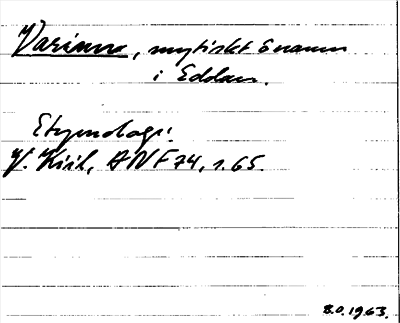 Varinns, mytiskt önamn
i Eddan.
Etymologi:
V. Kiil, ANF 74, s. 65.
B.O. 1963.